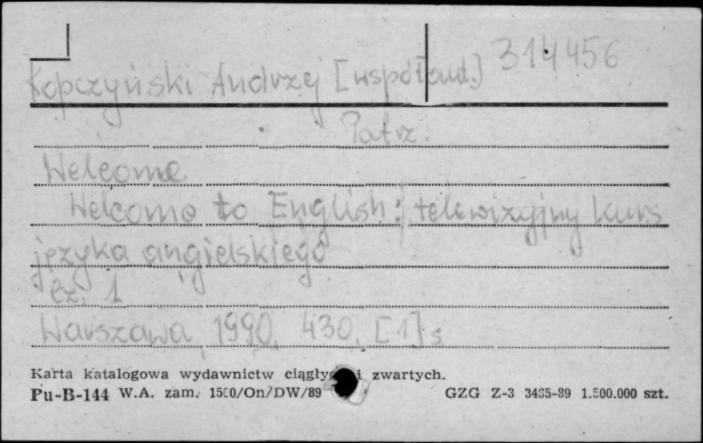 314456
Kopczyński Andrzej [współaut.]
Patrz:
Welcome
Welcome to English: telewizyjny kurs
języka angielskiego
cz. 1
Warszawa, 1990, 430, [1] s
Karta katalogowa wydawnictw ciągłych i zwartych.
Pu-B-144 W.A. zam. 1500/On/DW/89 GZG Z-3 3435-89 1.500.000 szt.